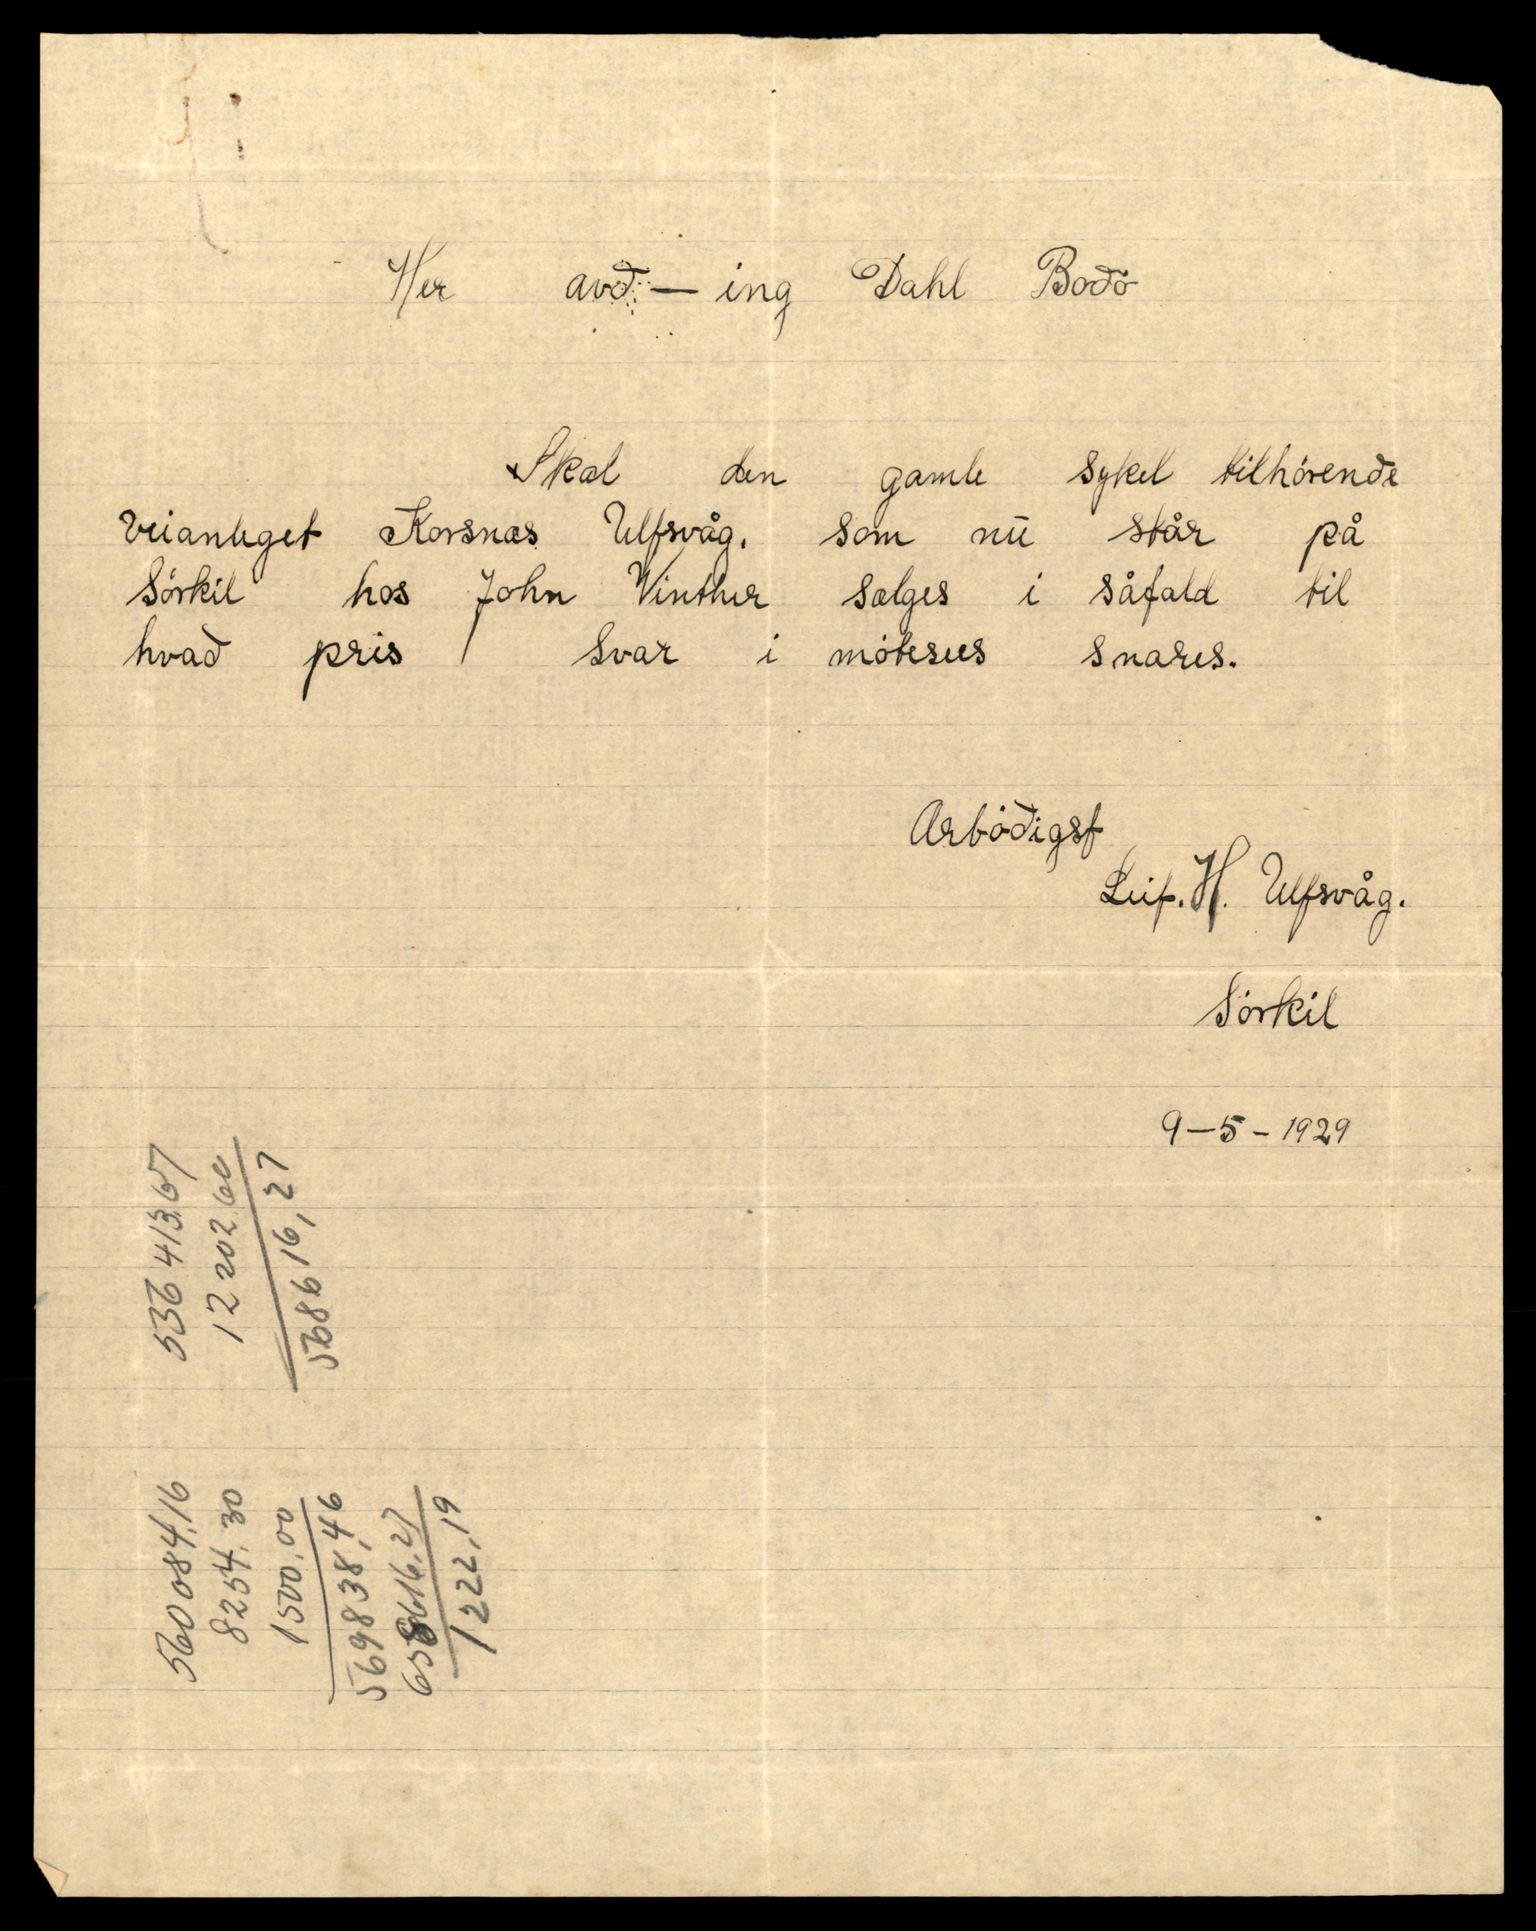 Her avd — ing Dahl Bodö
Skal den gamle sykel tilhörende
veianleget Korsnæs Ulfsvåg. som nū står på
Sörkil hos John Vinther sælges i såfald til
hvad pris / Svar i möteses snares.
Arbödigst
Leif. H. Ulfsvåg.
Sörkil
9-5-1929
536 413.67
12 202.60
568616,27
560 084,16
8254.30
1500.00
569838,46
568616,27
1222,19